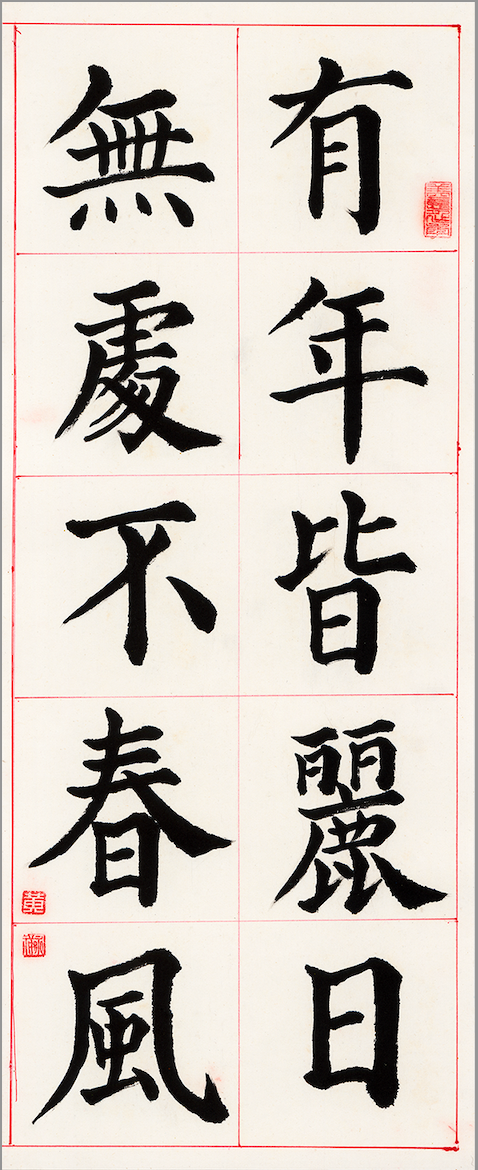 有年皆麗日
無處不春風